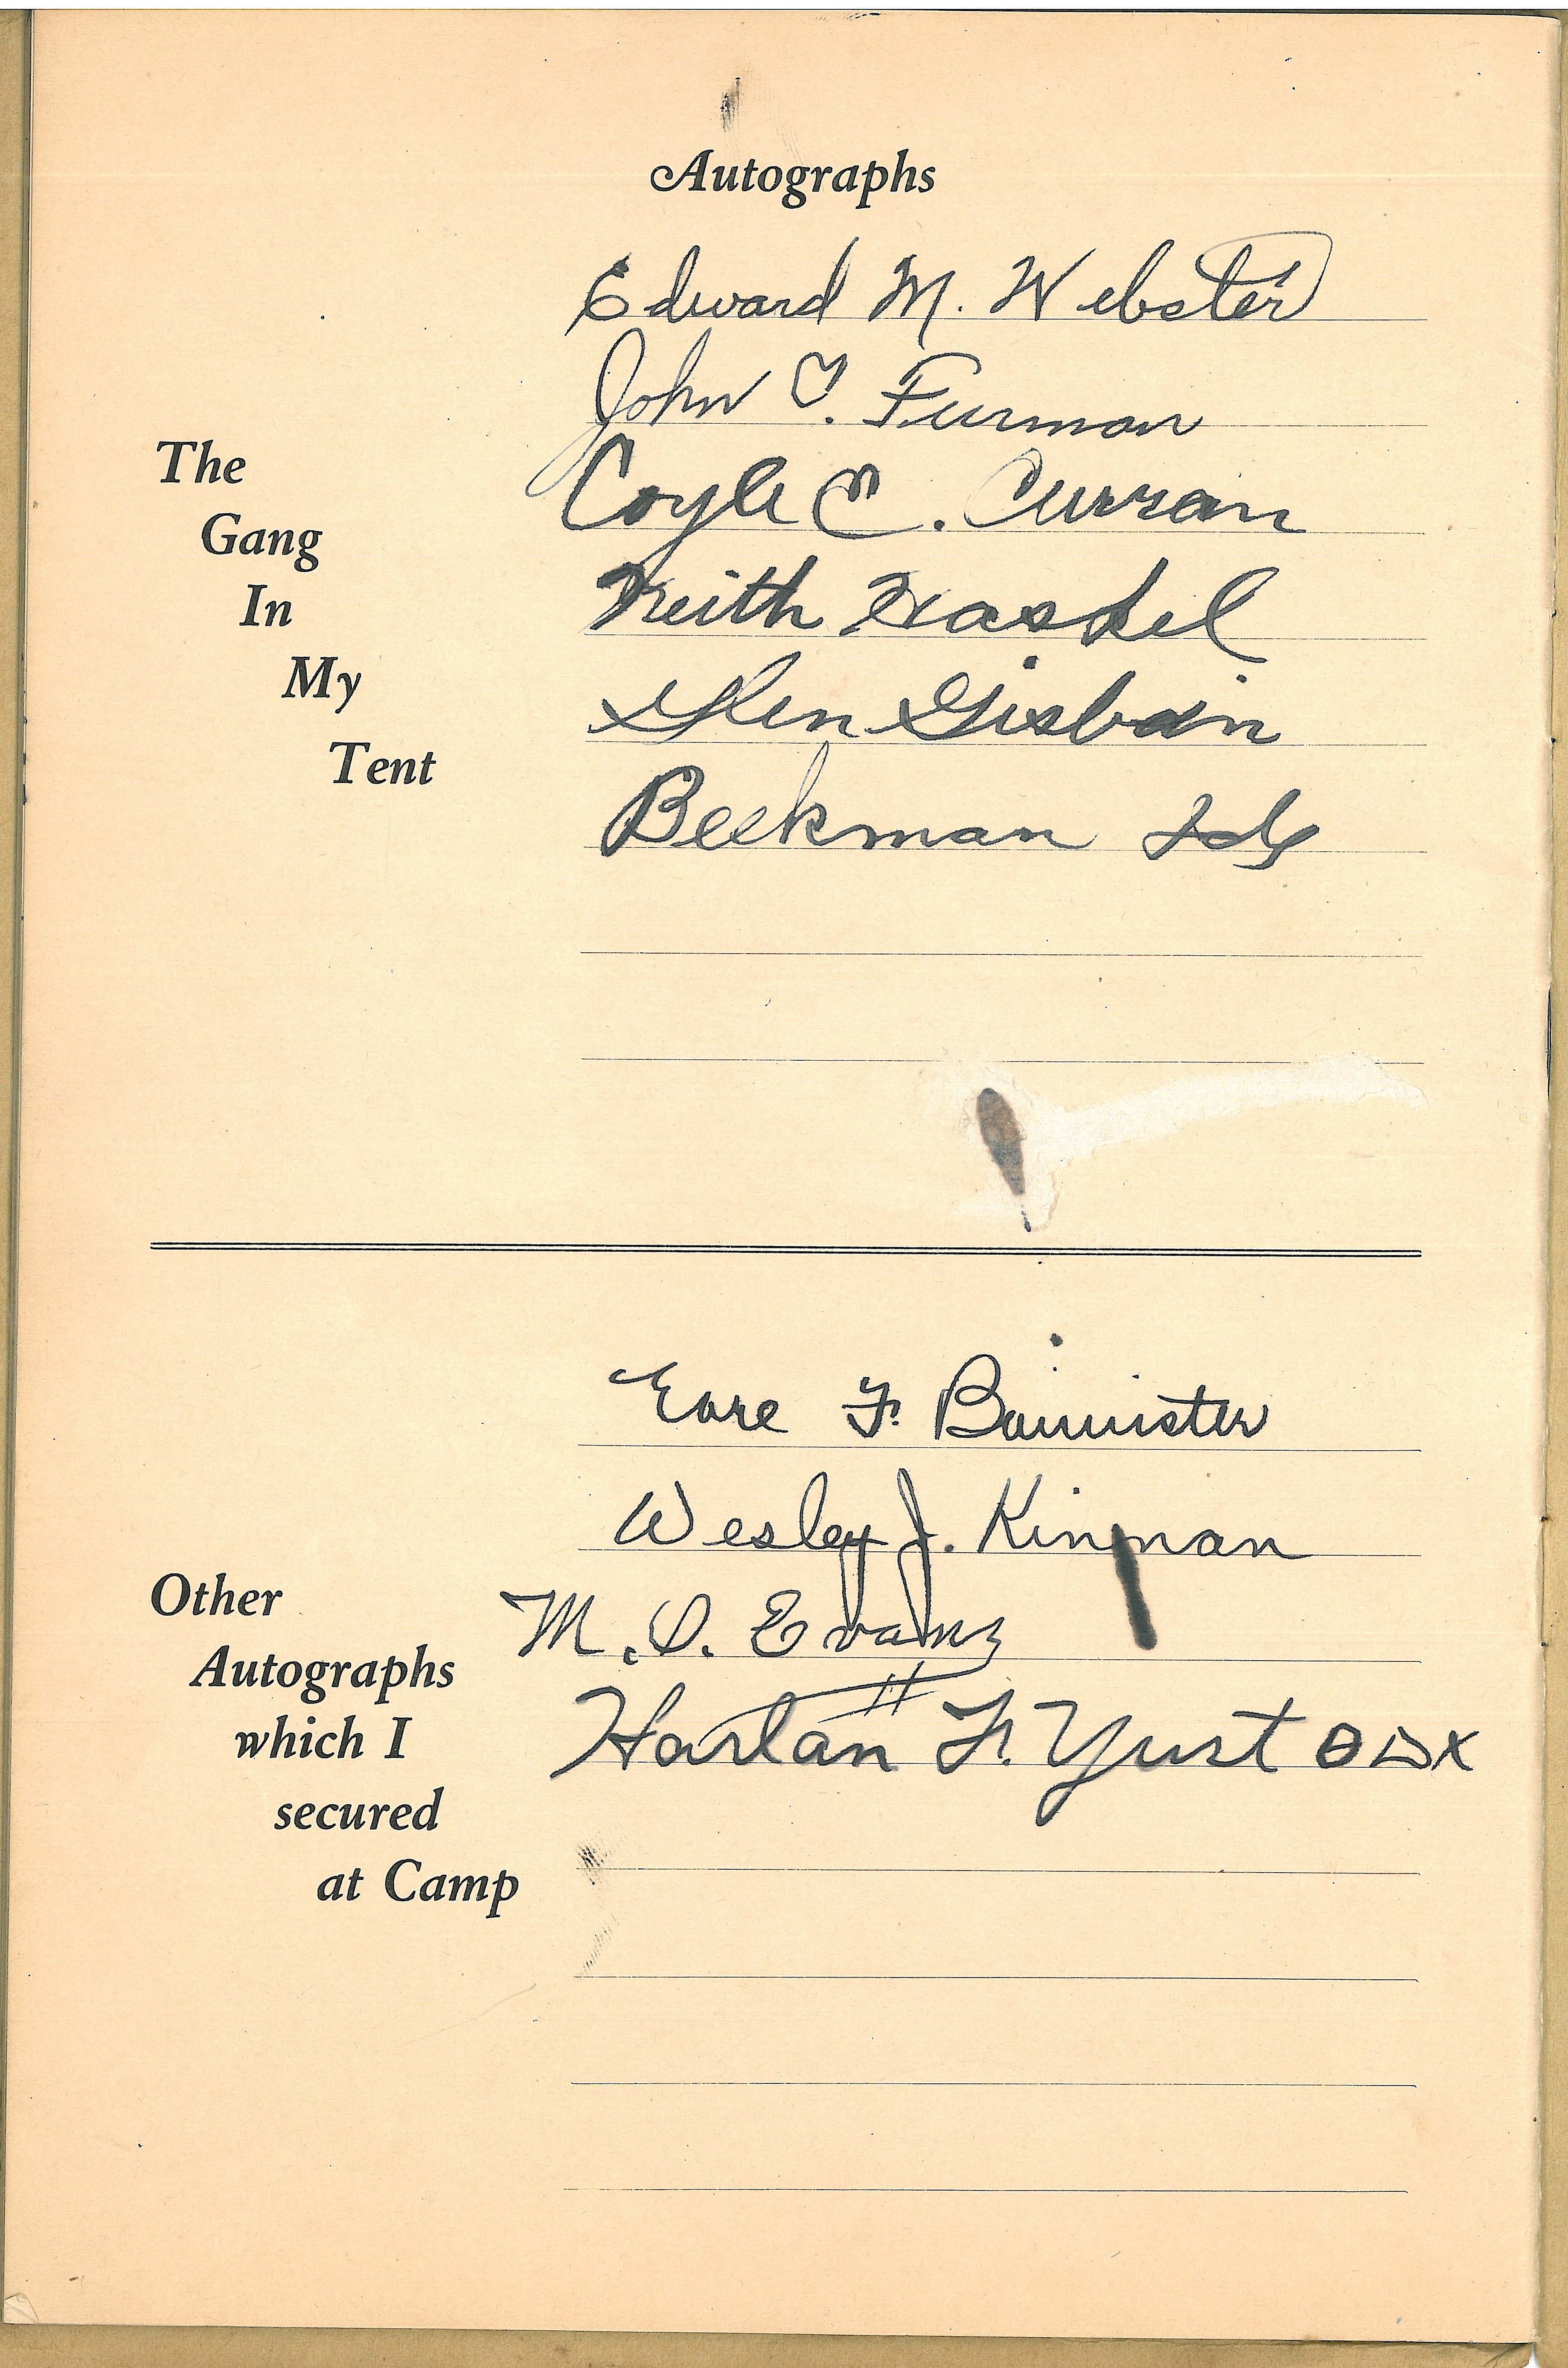 Autographs
The
Gang
In
My
Tent
Edward M. Webster
John Furman
Coyle C. Curran
Keith Haskel
Glen
Beekman
Other
Autographs
which I
secured
at Camp
F. Bannister
Wesley J. Kinman
M. O. Evans
Harlan F. Yust